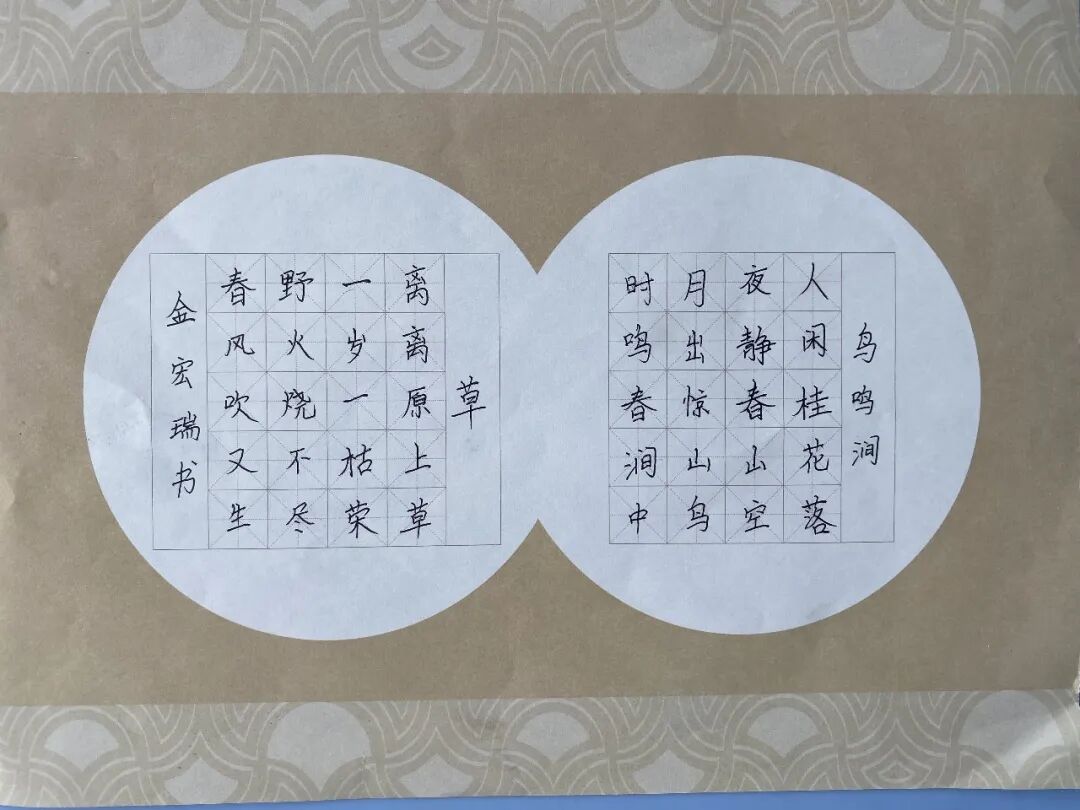 鸟鸣涧
人闲桂花落
夜静春山空
月出惊山鸟
时鸣春涧中
草
离离原上草
一岁一枯荣
野火烧不尽
春风吹又生
金宏瑞书